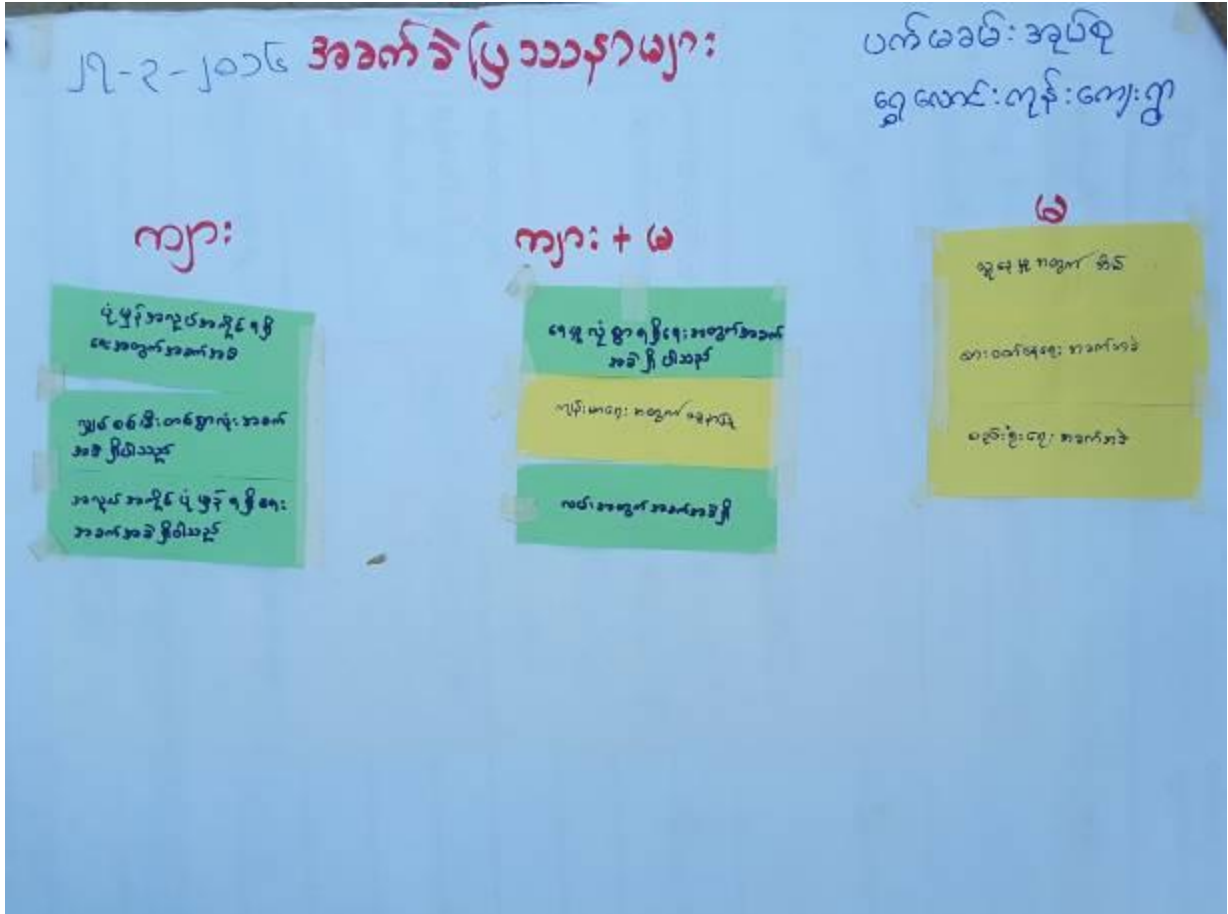 ၂၇-၃-၂၀၁၆ အခက်ခဲပြဿနာများ
ပက်မခမ်းအုပ်စု
ရွှေလောင်းကုန်းကျေးရွာ
ကျား
ပုံမှန်အလုပ်အကိုင်ရရှိ
ရေးအတွက်အခက်အခဲ
လျှပ်စစ်မီးတစ်ရွာလုံးအခက်
အခဲရှိပါသည်
အလုပ်အကိုင်ပုံမှန်ရရှိရေး
အခက်အခဲရှိပါသည်
ကျား + မ
ရေလုံစွာရရှိရေးအတွက်အခက်
အခဲရှိပါသည်
ကျန်းမာရေးအတွက်
လမ်းအတွက်အခက်အခဲရှိ
မ
အတွက်
စားဝတ်နေရေးအခက်အခဲ
စည်းရုံးရေးအခက်အခဲ